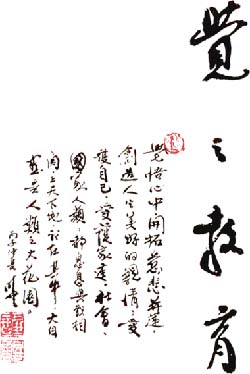 覺之教育
覺悟心中開拓慈悲
創造人生美好的親情、愛
護自己、愛護家庭、社會、
國家人類，都息息與相
關，上天下地，在其中，大自
是人類之大花園。
丙子